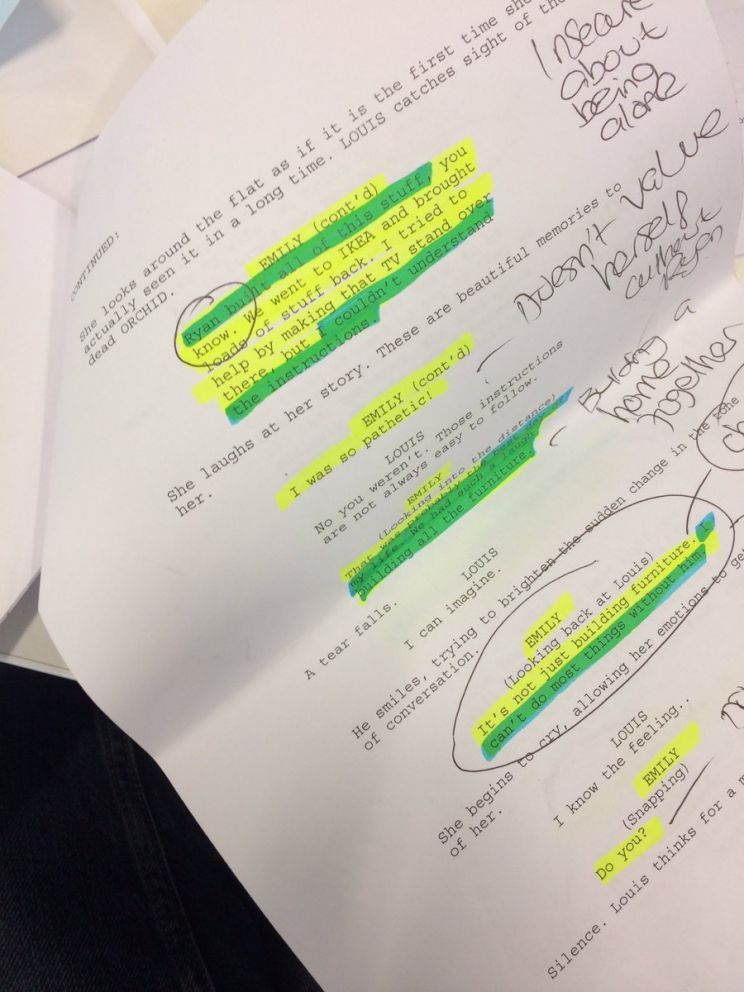 CONTINUED:
She looks around the flat as if it is the first time she
actually seen it in a long time. LOUIS catches sight of the
dead ORCHID.
Insecure
about
being
alone
EMILY (cont'd)
Ryan built all of this stuff, you
know. We went to IKEA and brought
loads of stuff back. I tried to
help by making that TV stand over
there, but I couldn't understand
the instructions.
Doesn't value
herself
without
Ryan
She laughs at her story. These are beautiful memories to
her.
EMILY (cont'd)
I was so pathetic!
Building a
home
together
LOUIS
No you weren't. Those instructions
are not always easy to follow.
EMILY
(Looking into the distance)
That was probably the best day of
my life. We had such a laugh
building all the furniture.
A tear falls.
LOUIS
I can imagine.
He smiles, trying to brighten the sudden change in the tone
of conversation.
EMILY
(Looking back at Louis)
It's not just building furniture. I
can't do most things without him.
She begins to cry, allowing her emotions to
of her.
LOUIS
I know the feeling..
EMILY
(Snapping)
Do you?
Silence. Louis thinks for a